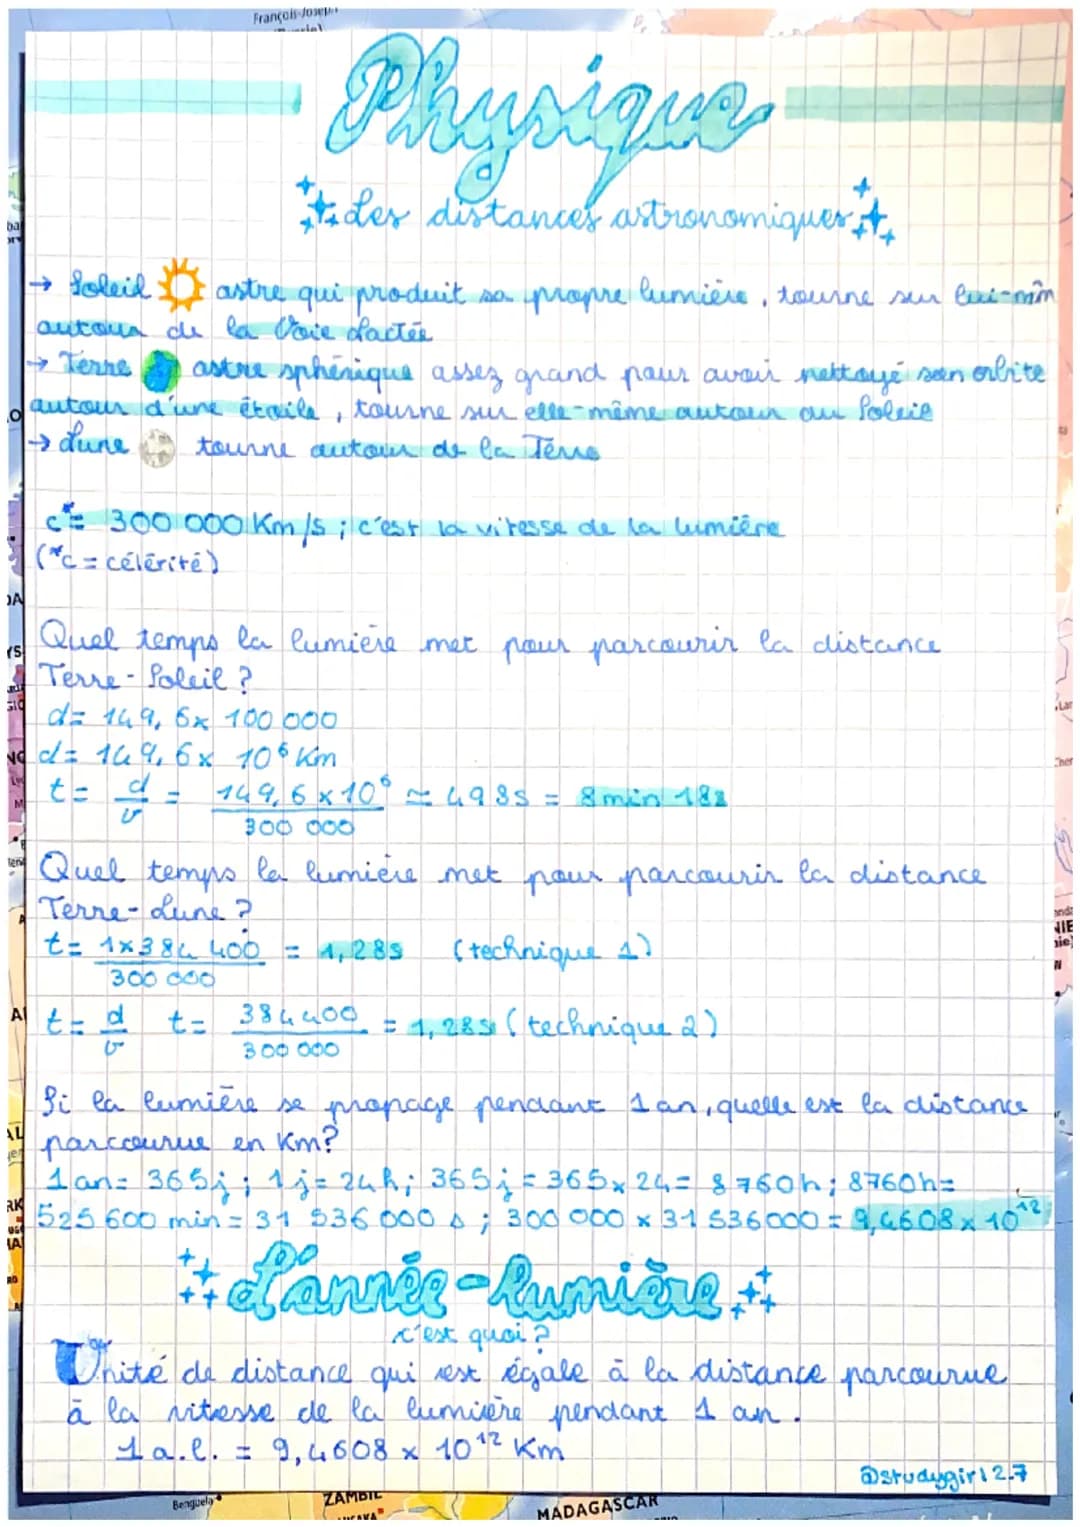 François-Joseph
Physique
Les distances astronomiques
→ Soleil astre qui produit sa propre lumière, tourne sur lui-mm
autour de la Voie Lactée
→ Terre astre sphérique assez grand pour avoir nettoyé son orbite
autour d'une étoile, tourne sur elle-même autour du Soleil
→ Lune tourne autour de la Terre
c*= 300 000 Km/s ; c'est la vitesse de la lumière
(*c = célérité)
Quel temps la lumière met pour parcourir la distance
Terre-Soleil ?
d= 149, 6x 100 000
d= 149, 6x 10⁶ Km
t= d/v = 149,6 x 10⁶ / 300 000 ≃ 498s = 8 min 18s
Quel temps la lumière met pour parcourir la distance
Terre-Lune ?
t= 1x384 400 / 300 000 = 1,28s (technique 1)
t= d/v t= 384400 / 300 000 = 1,28s (technique 2)
Si la lumière se propage pendant 1 an, quelle est la distance
parcourue en Km?
1 an= 365j ; 1j= 24h; 365j = 365x24= 8760h; 8760h=
525 600 min = 31 536 000 s ; 300 000 x 31 536000 = 9,4608 x 10¹²
L'année-lumière
c'est quoi ?
Unité de distance qui est égale à la distance parcourue
à la vitesse de la lumière pendant 1 an.
1 a.l. = 9,4608 x 10¹² Km
@studygirl2.7
Benguela
ZAMBIE
MADAGASCAR